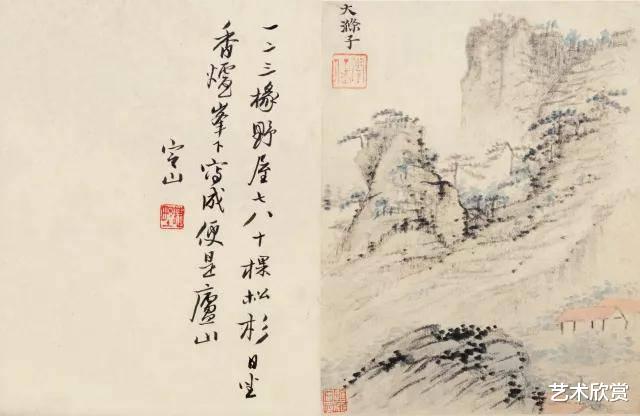 大滌子
一二三椽野屋七八十棵松杉日坐
香爐峯下寫成便是廬山
定山
艺术欣赏